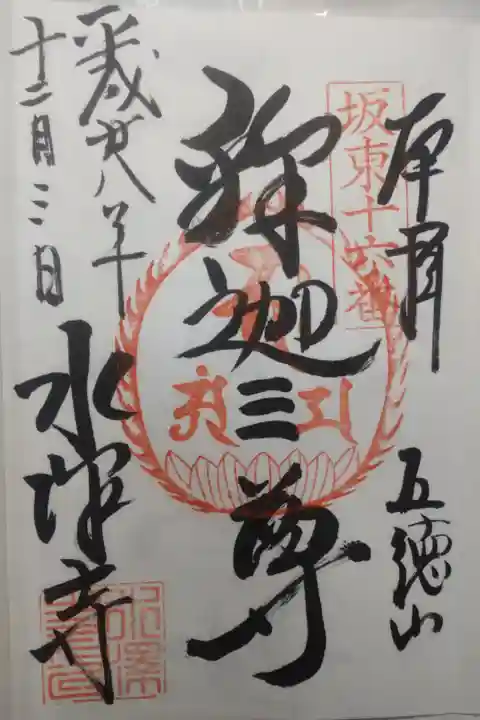 奉拝
坂東十六番
五徳山
釈迦三尊
平成廿八年
十二月三日
水澤寺